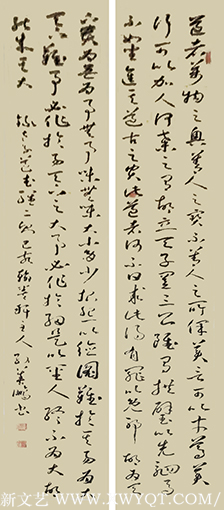 道者萬物之奧善人之寶不善人之所保美言可以市尊美
行可以加人何棄之有故立天子置三公雖有拱璧以先駟馬
不如坐進此道古之所以貴此道者何不曰求以得有罪以免邪故為天
下貴為無為事無事味無味大小多少報怨以德圖難於其易為
天下難事必作於易天下之大事必作於細是以聖人終不為大故
能成其大
老子道德經二章己亥主人
新文艺-WWW.XWYQT.COM